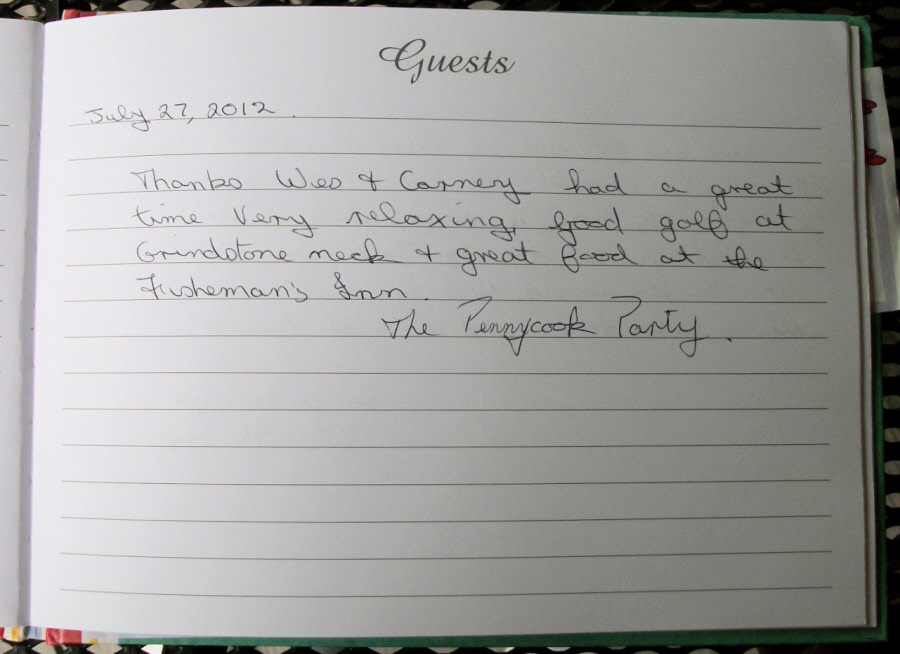 Guests
July 27, 2012.
Thanks Wes & Carney had a great
time Very relaxing, good golf at
Grindstone neck & great food at the
Fisheman's Inn.
The Pennycook Party.